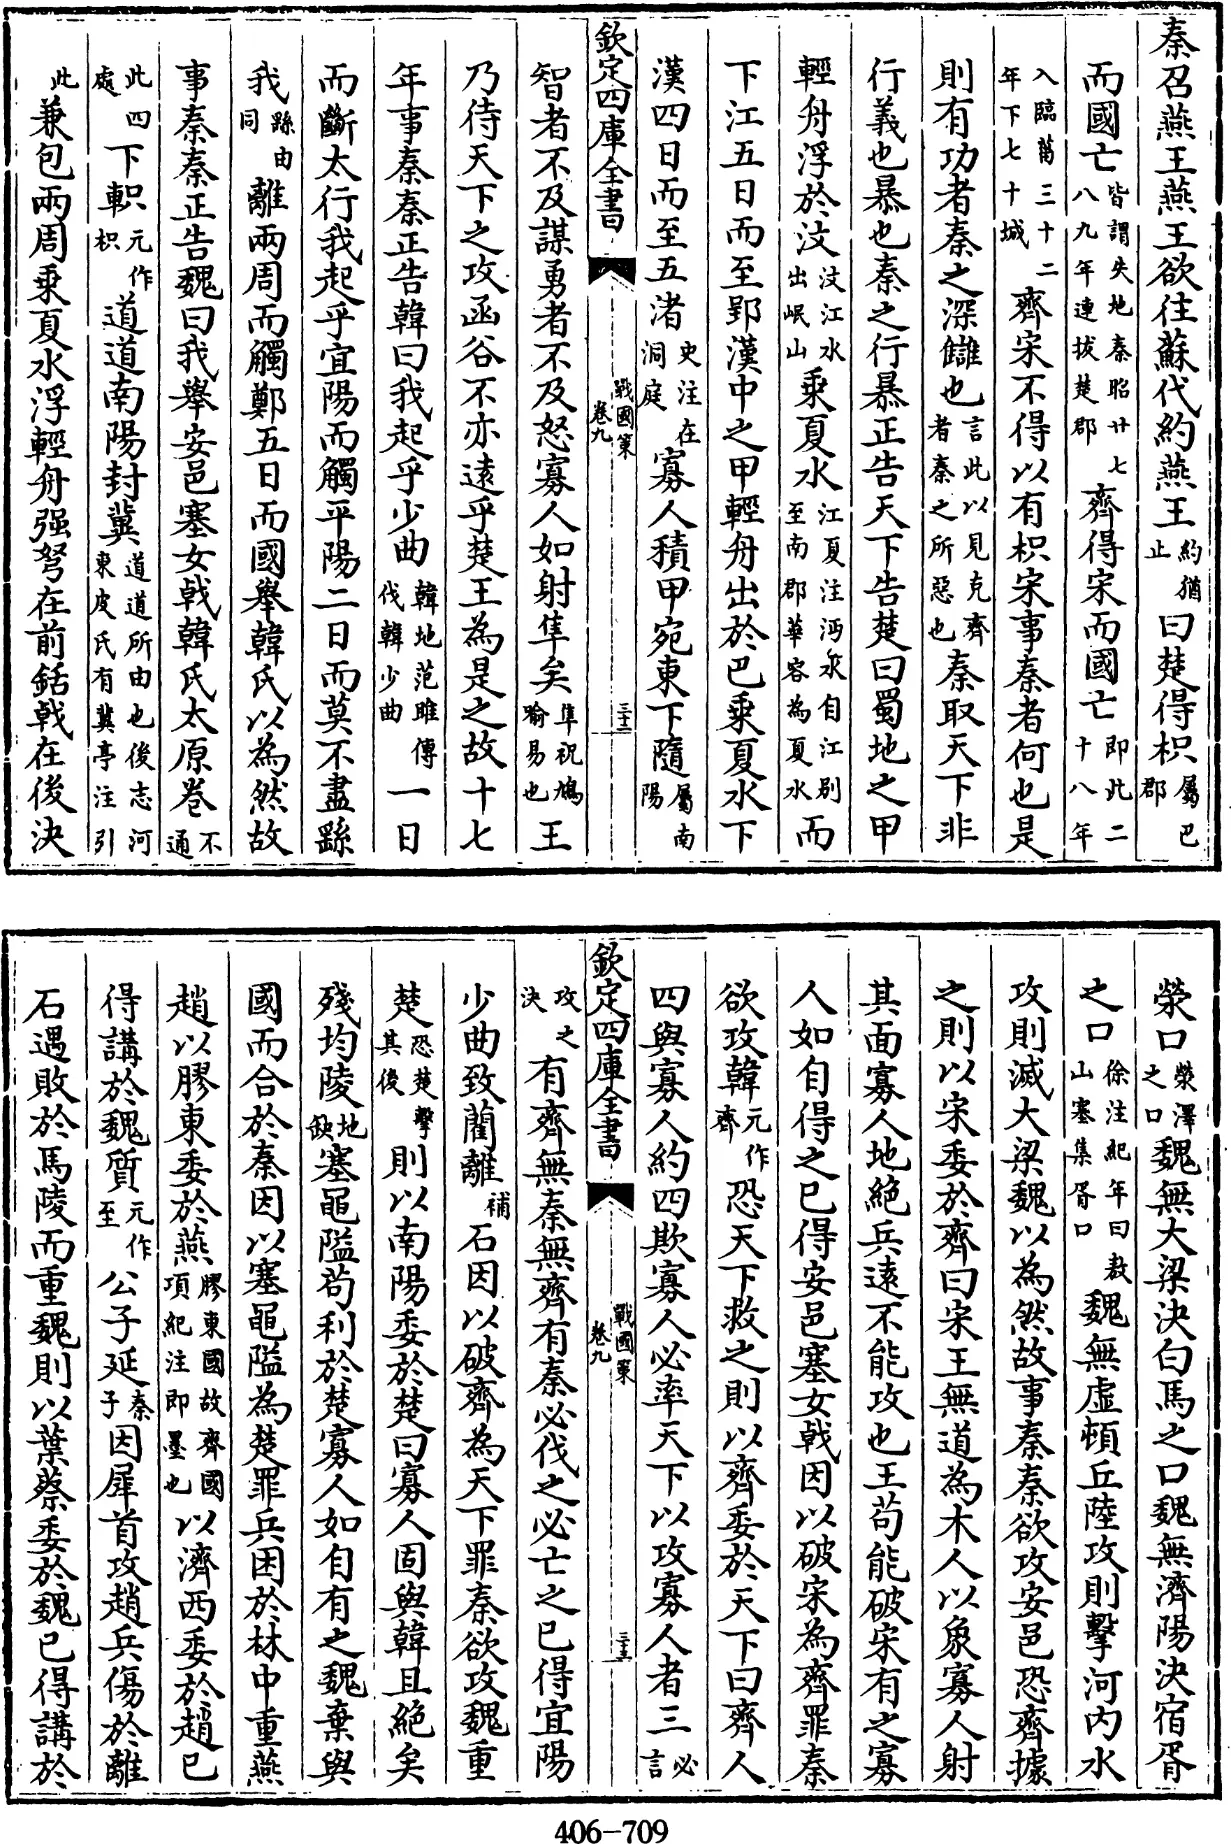 秦召燕王燕王欲往蘇代約燕王約猶止曰楚得枳屬巴郡
而國亡皆謂失地秦昭廿七八九年連拔楚郡齊得宋而國亡即此二十八年
入臨菑三十二年下七十城齊宋不得以有枳宋事秦者何也是
則有功者秦之深讎也言此以見克齊者秦之所惡也秦取天下非
行義也暴也秦之行暴正告天下告楚曰蜀地之甲
輕舟浮於汶汶江水出岷山乗夏水江夏注沔水自江别至南郡華容為夏水而
下江五日而至郢漢中之甲輕舟出於巴乗夏水下
漢四日而至五渚史注在洞庭寡人積甲宛東下隨屬南陽
欽定四庫全書 戰國策卷九 三十二
智者不及謀勇者不及怒寡人如射隼矣隼祝鳩喻易也王
乃待天下之攻函谷不亦遠乎楚王為是之故十七
年事秦秦正告韓曰我起乎少曲韓地范雎傳伐韓少曲一日
而斷太行我起乎宜陽而觸平陽二日而莫不盡繇
我繇由同離兩周而觸鄭五日而國舉韓氏以為然故
事秦秦正告魏曰我舉安邑塞女戟韓氏太原卷不通
此四處下軹元作枳道道南陽封冀道道所由也後志河東皮氏有冀亭注引
此兼包兩周乗夏水浮輕舟强弩在前銛戟在後決
滎口滎澤之口魏無大梁決白馬之口魏無濟陽決宿胥
之口徐注紀年曰救山塞集胥口魏無虛頓丘陸攻則擊河内水
攻則滅大梁魏以為然故事秦秦欲攻安邑恐齊據
之則以宋委於齊曰宋王無道為木人以象寡人射
其面寡人地絶兵遠不能攻也王苟能破宋有之寡
人如自得之已得安邑塞女戟因以破宋為齊罪秦
欲攻韓元作齊恐天下救之則以齊委於天下曰齊人
四與寡人約四欺寡人必率天下以攻寡人者三必言
欽定四庫全書 戰國策卷九 三十三
攻之決有齊無秦無齊有秦必伐之必亡之已得宜陽
少曲致藺離補石因以破齊為天下罪秦欲攻魏重
楚恐楚擊其後則以南陽委於楚曰寡人固與韓且絶矣
殘均陵地缺塞黽隘苟利於楚寡人如自有之魏棄與
國而合於秦因以塞黽隘為楚罪兵困於林中重燕
趙以膠東委於燕膠東國故齊國項紀注即墨也以濟西委於趙已
得講於魏質元作至公子延秦子因犀首攻趙兵傷於離
石遇敗於馬陵而重魏則以葉蔡委於魏已得講於
406-709